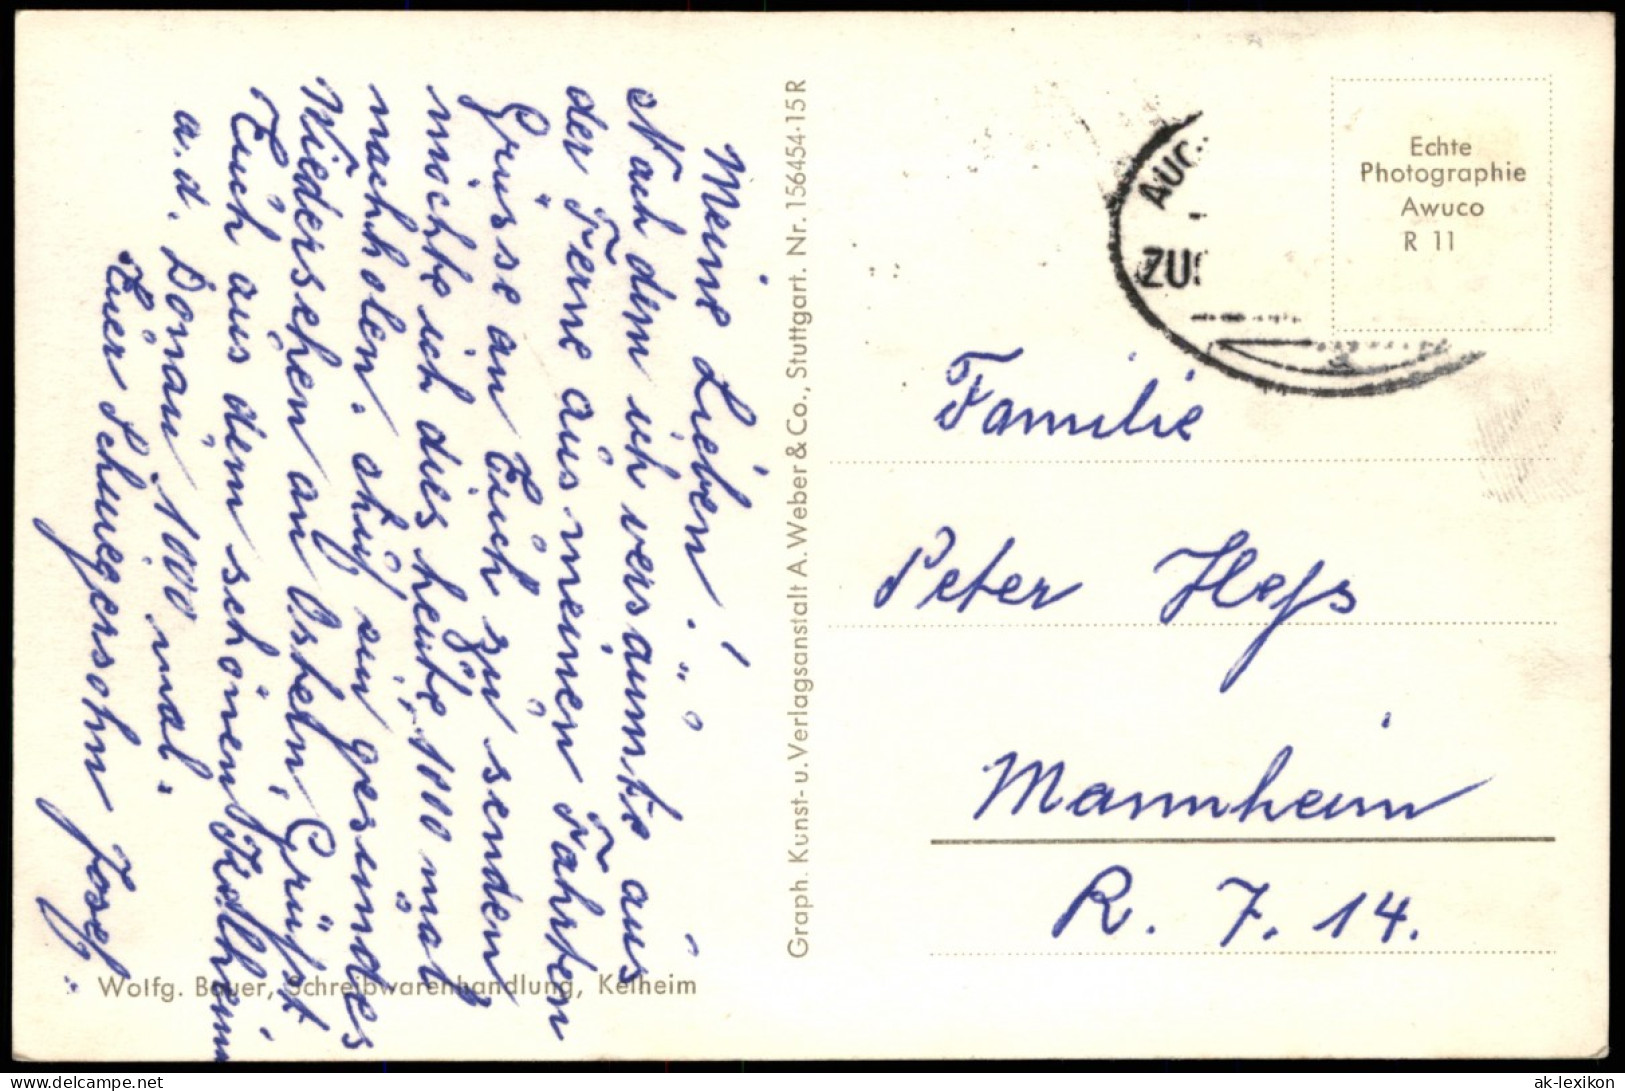 Meine Lieben!
Nach dem ich versäumte aus
der Ferne aus meinen Fahrten
Grüsse an Euch zu senden
möchte ich dies heute 1000 mal
nachholen. auf ein gesundes
Wiedersehen an Ostern, Grüsst
Euch aus dem schönen Kelheim
a. d. Donau 1000 mal.
Euer Schwiegersohn Josef.
Wolfg. Bauer, Schreibwarenhandlung, Kelheim
Graph. Kunst- u. Verlagsanstalt A. Weber & Co., Stuttgart. Nr. 156454-15 R
AUG
ZUG
Echte
Photographie
Awuco
R 11
Familie
Peter Heß
Mannheim
R. 7. 14.
ak-lexikon